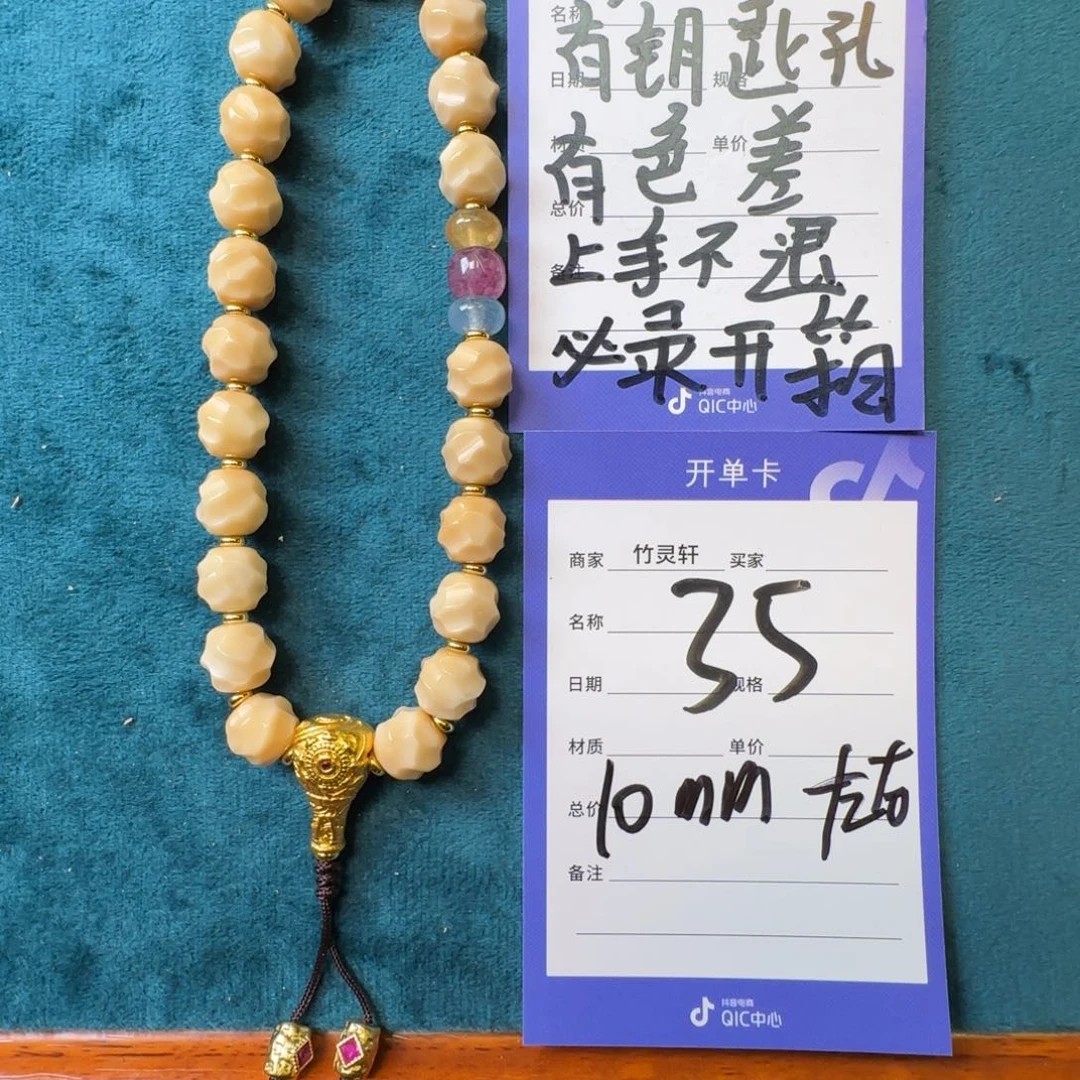 名称
有钥匙孔
日期 规格
有色差
材质 单价
总价
上手不退
备注
必录开箱
抖音电商
QIC中心
开单卡
商家 竹灵轩 买家
名称
35
日期 规格
材质 单价
10mm 左右
总价
备注
抖音电商
QIC中心